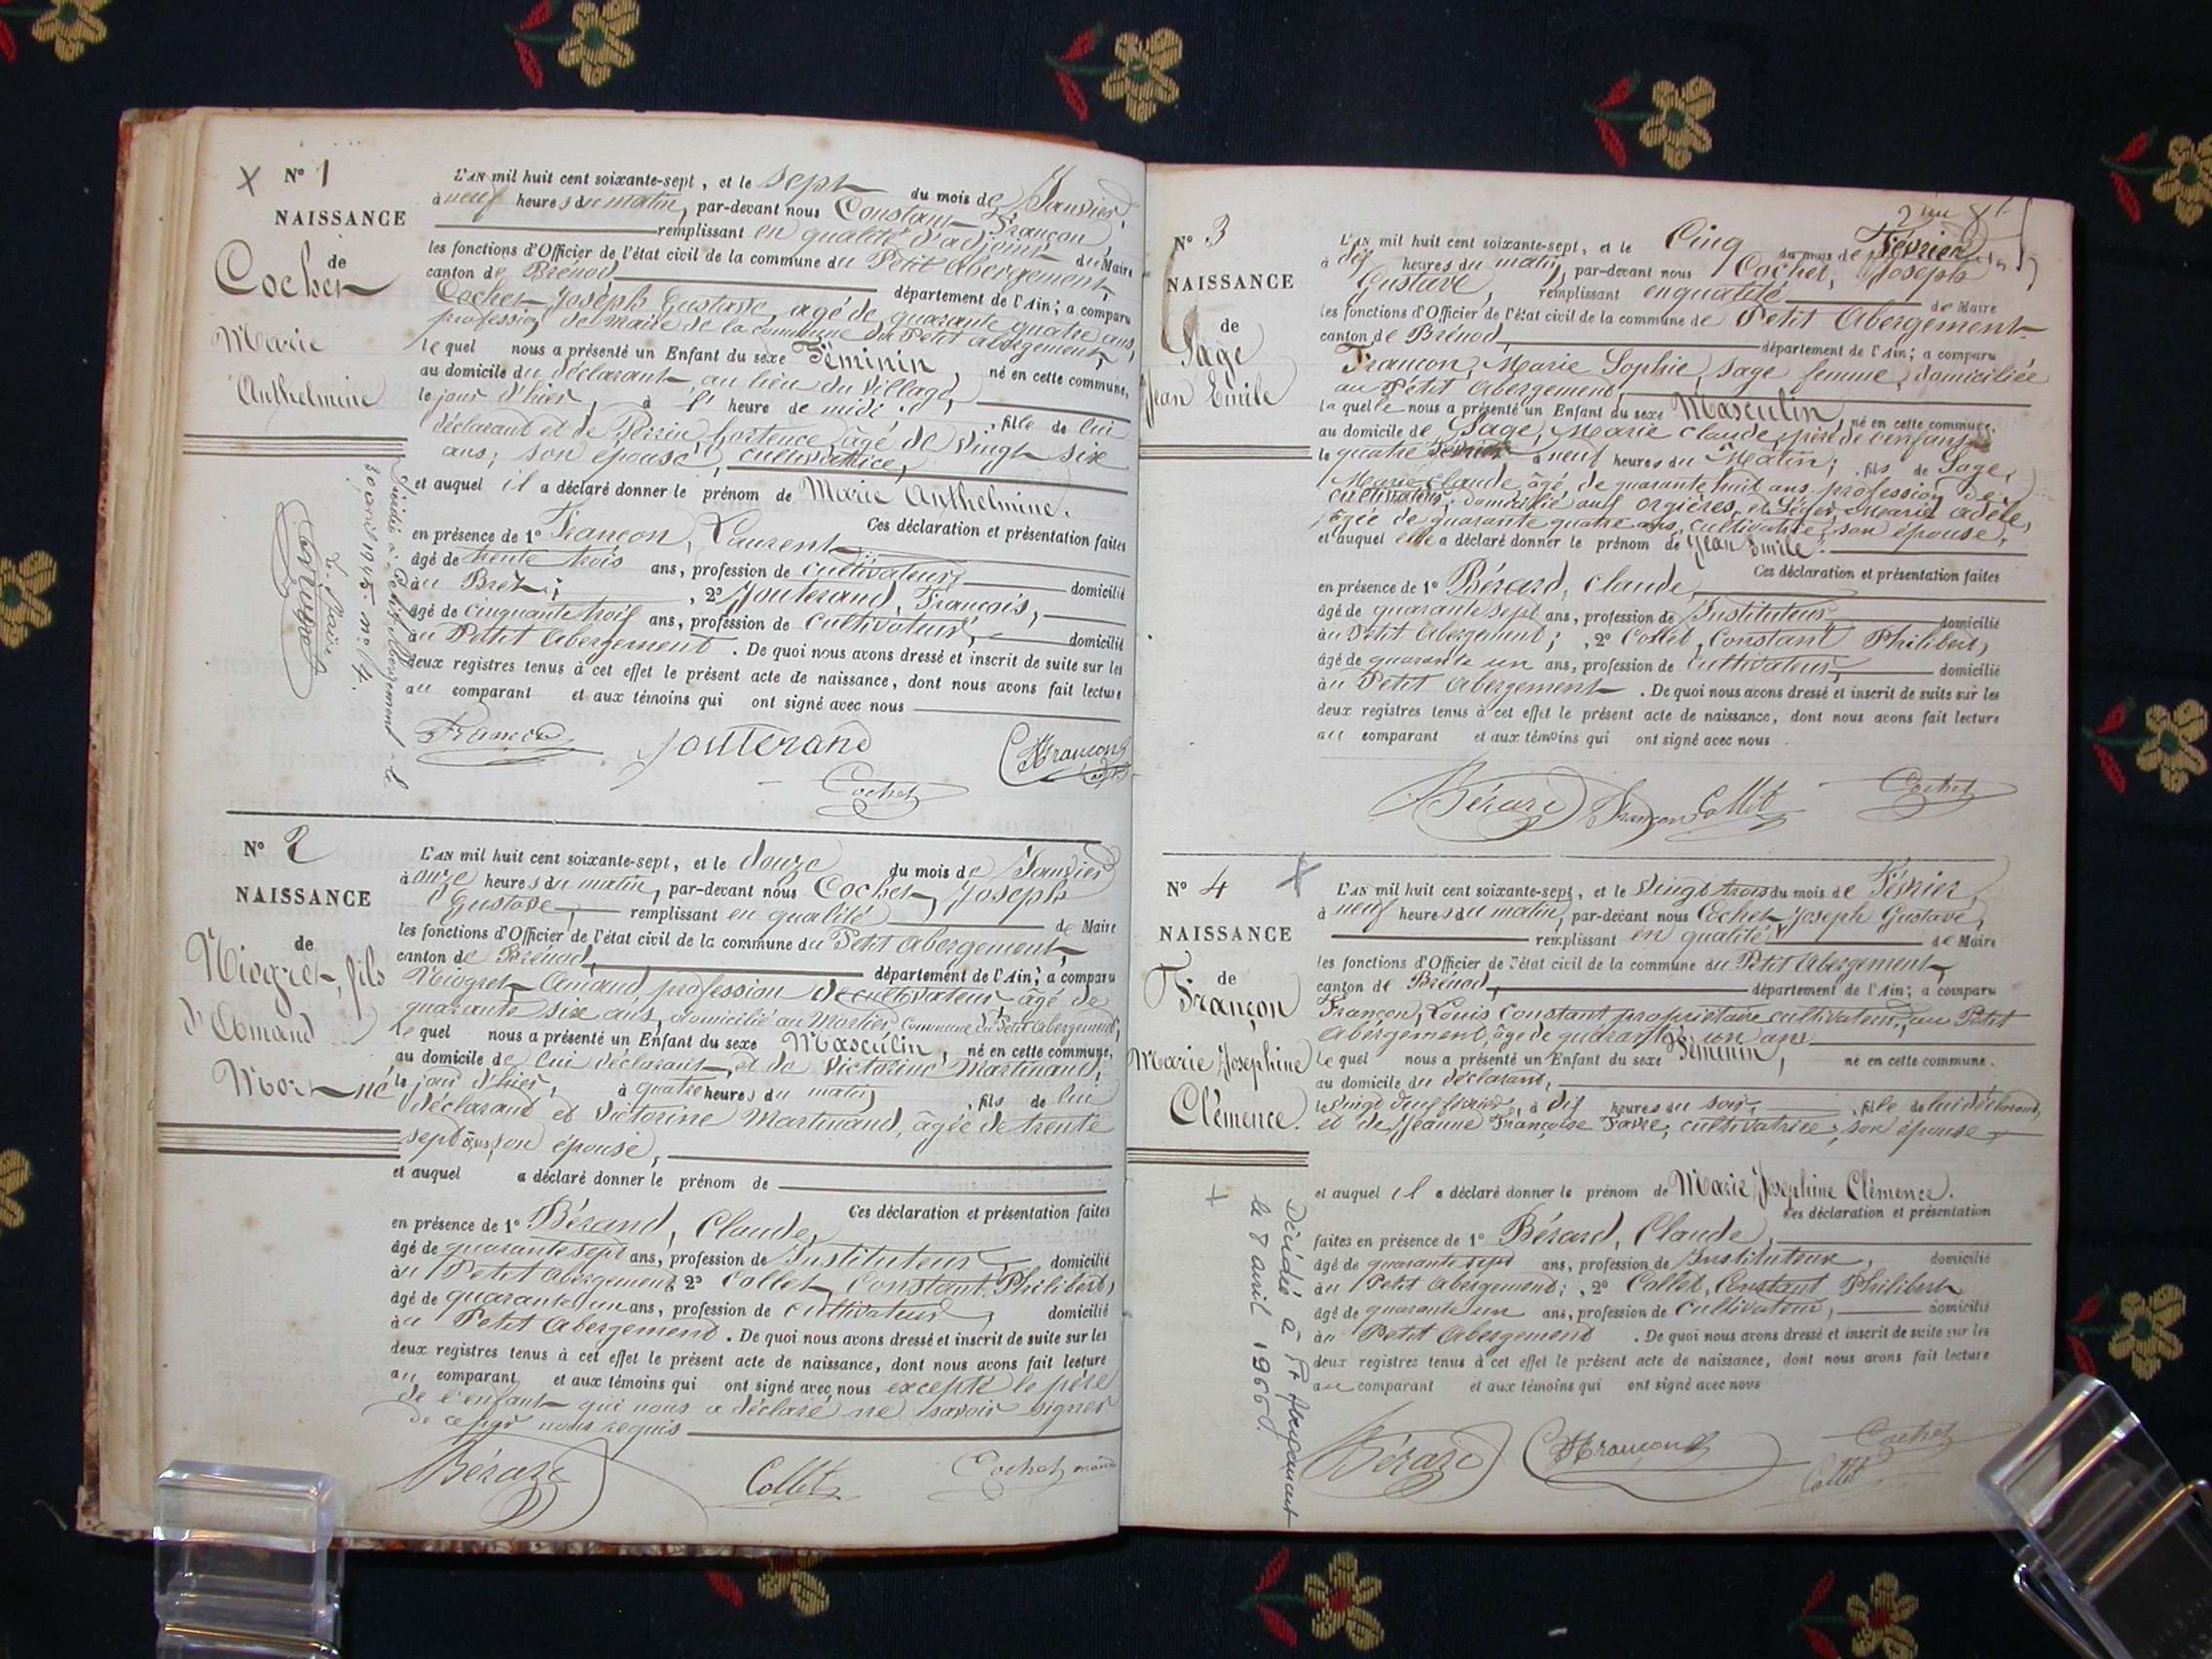 X N° 1
NAISSANCE
de
Cochet
Marie
Anthelmine
L'AN mil huit cent soixante-sept, et le sept du mois de Janvier,
à neuf heures du matin, par-devant nous Constant Françon,
remplissant en qualité d'adjoint du Maire
les fonctions d'Officier de l'état civil de la commune du Petit Abergement,
canton de Brénod, département de l'Ain; a comparu
Cochet Joseph Gustave, agé de quarante quatre ans,
profession de Maire de la commune du Petit abergement,
le quel nous a présenté un Enfant du sexe Féminin, né en cette commune,
au domicile du déclarant, au lieu du Village,
le jour d'hier, à l' heure de midi, fille de lui
déclarant et de Perrin hortence, âgé de vingt six
ans; son épouse, cultivatrice,
et auquel il a déclaré donner le prénom de Marie Anthelmine.
Ces déclaration et présentation faites
en présence de 1° Françon, Laurent
âgé de trente trois ans, profession de cultivateur, domicilié
au Bret; , 2° Jouterand, François,
âgé de cinquante trois ans, profession de Cultivateur, domicilié
au Petit Abergement. De quoi nous avons dressé et inscrit de suite sur les
deux registres tenus à cet effet le présent acte de naissance, dont nous avons fait lecture
au comparant et aux témoins qui ont signé avec nous
Françon Jouterand CFrançon adjt
Cochet
Décédée à Petit Abergement le
20 avril 1945 n° 4.
Le Maire
N° 2
NAISSANCE
de
Niogret, fils
d'Amand
Mort-né
L'AN mil huit cent soixante-sept, et le douze du mois de Janvier
à onze heures du matin, par-devant nous Cochet, Joseph
Gustave, remplissant en qualité de Maire
les fonctions d'Officier de l'état civil de la commune du Petit Abergement,
canton de Brénod, département de l'Ain; a comparu
Niogret Amand, profession de cultivateur âgé de
quarante six ans, domicilié au Mortier commune du Petit abergement,
le quel nous a présenté un Enfant du sexe Masculin, né en cette commune,
au domicile de lui déclarant, et de Victorine Martinand,
le jour d'hier, à quatre heures du matin, fils de lui
déclarant et Victorine Martinand, âgée de trente
sept ans, son épouse,
et auquel a déclaré donner le prénom de
Ces déclaration et présentation faites
en présence de 1° Bérard, Claude,
âgé de quarante sept ans, profession de Instituteur, domicilié
au Petit Abergement, 2° Collet, Constant Philibert,
âgé de quarante un ans, profession de cultivateur, domicilié
au Petit Abergement. De quoi nous avons dressé et inscrit de suite sur les
deux registres tenus à cet effet le présent acte de naissance, dont nous avons fait lecture
au comparant et aux témoins qui ont signé avec nous excepté le père
de l'enfant qui nous a déclaré ne savoir signer
de ce par nous requis
Bérard Collet Cochet maire
N° 3
NAISSANCE
de
Sage
Jean Emile
L'AN mil huit cent soixante-sept, et le Cinq du mois de Février
à dix heures du matin, par-devant nous Cochet, Joseph
Gustave, remplissant en qualité de Maire
les fonctions d'Officier de l'état civil de la commune de Petit Abergement
canton de Brénod, département de l'Ain; a comparu
Françon, Marie Sophie, sage femme, domiciliée
au Petit Abergement,
la quelle nous a présenté un Enfant du sexe Masculin, né en cette commune,
au domicile de Sage, Marie claude, père de l'enfant,
le quatre Février à neuf heures du Matin; fils de Sage,
Marie Claude, âgé de quarante huit ans, profession de
cultivateur, domicilié aux orgières, et Léger Marie adèle,
âgée de quarante quatre ans, cultivatrice, son épouse,
et auquel elle a déclaré donner le prénom de Jean Emile.
Ces déclaration et présentation faites
en présence de 1° Bérard, Claude,
âgé de quarante sept ans, profession de Instituteur, domicilié
au Petit Abergement; , 2° Collet, Constant Philibert,
âgé de quarante un ans, profession de Cultivateur, domicilié
au Petit Abergement. De quoi nous avons dressé et inscrit de suite sur les
deux registres tenus à cet effet le présent acte de naissance, dont nous avons fait lecture
au comparant et aux témoins qui ont signé avec nous.
Bérard Françon Collet Cochet
N° 4 X
NAISSANCE
de
Françon
Marie Joséphine
Clémence.
L'AN mil huit cent soixante-sept, et le vingt trois du mois de Février,
à neuf heures du matin, par-devant nous Cochet Joseph Gustave,
remplissant en qualité de Maire
les fonctions d'Officier de l'état civil de la commune du Petit Abergement,
canton de Brénod, département de l'Ain; a comparu
Françon, Louis Constant propriétaire cultivateur, au Petit
Abergement, âgé de quarante un ans
le quel nous a présenté un Enfant du sexe Féminin, né en cette commune.
au domicile du déclarant,
le vingt deux février, à dix heures du soir, fille de lui déclarant,
et de Jeanne Françoise Favre, cultivatrice, son épouse
et auquel il a déclaré donner le prénom de Marie Joséphine Clémence.
Ces déclaration et présentation
faites en présence de 1° Bérard, Claude,
âgé de quarante sept ans, profession de Instituteur, domicilié
au Petit Abergement; , 2° Collet, Constant Philibert
âgé de quarante un ans, profession de Cultivateur, domicilié
au Petit Abergement. De quoi nous avons dressé et inscrit de suite sur les
deux registres tenus à cet effet le présent acte de naissance, dont nous avons fait lecture
au comparant et aux témoins qui ont signé avec nous
Bérard CFrançon Cochet
Collet
Décédée à Pt Abergement
le 8 avril 1966.
+